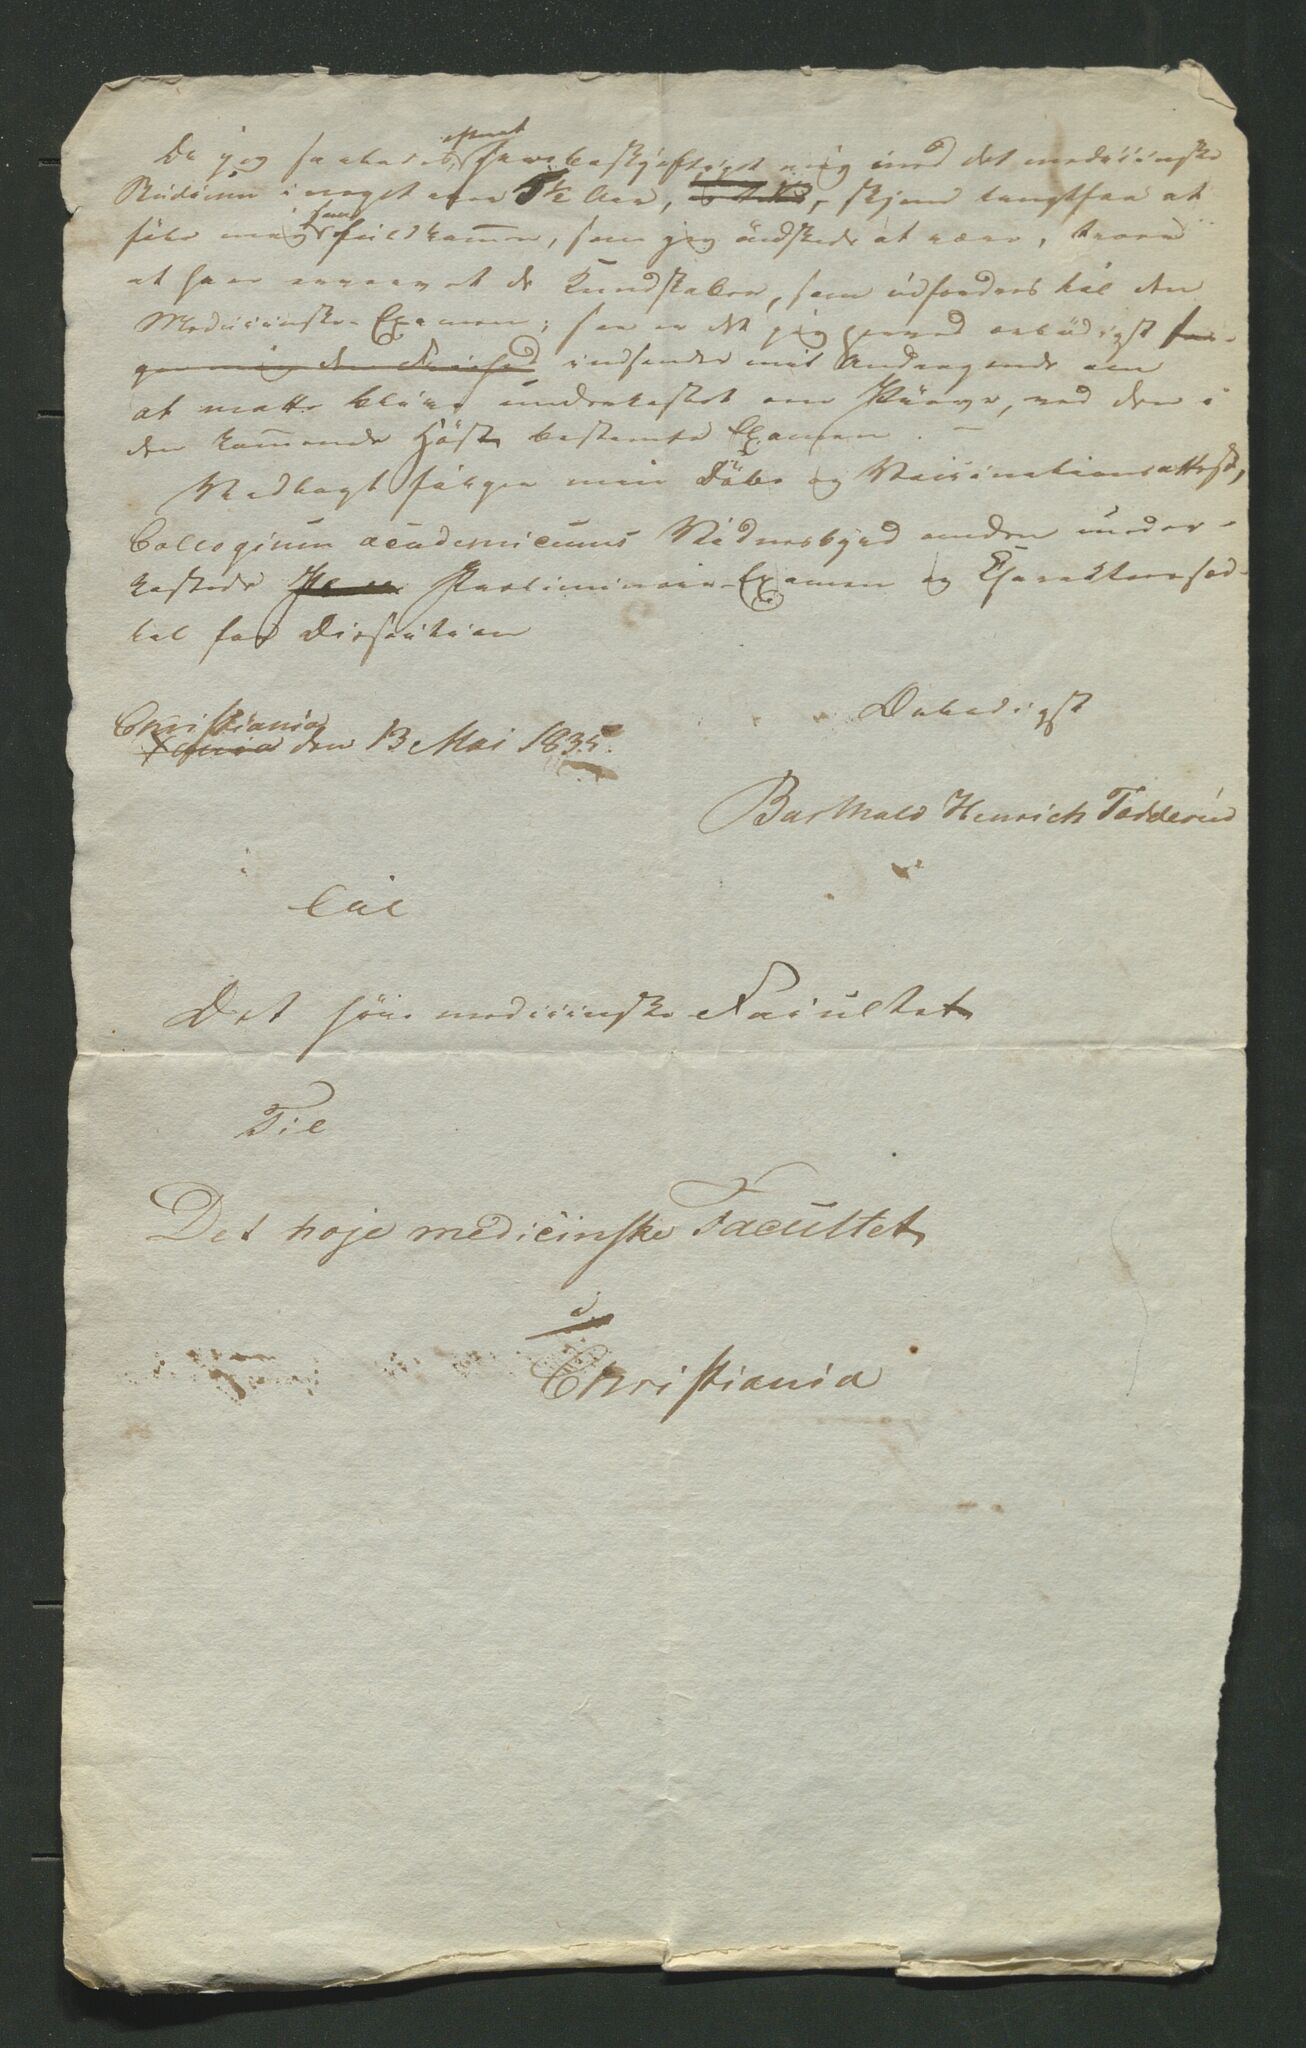 Da jeg saaledes havr beskjæftiget mig med det medicinske
Studium i noget over 5½ Aar, skjønt langtfra at
føle mig saa fuldkommen, som jeg øndskede at være, troer
at have erhvervet de Kundskaber, som udfordres til den
Medicinske-Examen; saa er det jeg herved ærbødigst
indsender mit Andragende om
at maatte blive underkastet en Prøve, ved den i
den kommende Höst bestemte Examen. –
Vedlagt følger min Döbe og Vaccinationsattest,
Collegium academicums Vidnesbyrd om den under-
kastede Præliminær-Examen og Charakteersed-
del for Dissection
Christiania
den 13 Mai 1835.
Underdanigst
Barthold Henrich Todderud
Til
Det høie medicinske Facultet
Til
Det høje medicinske Facultet
i
Christiania